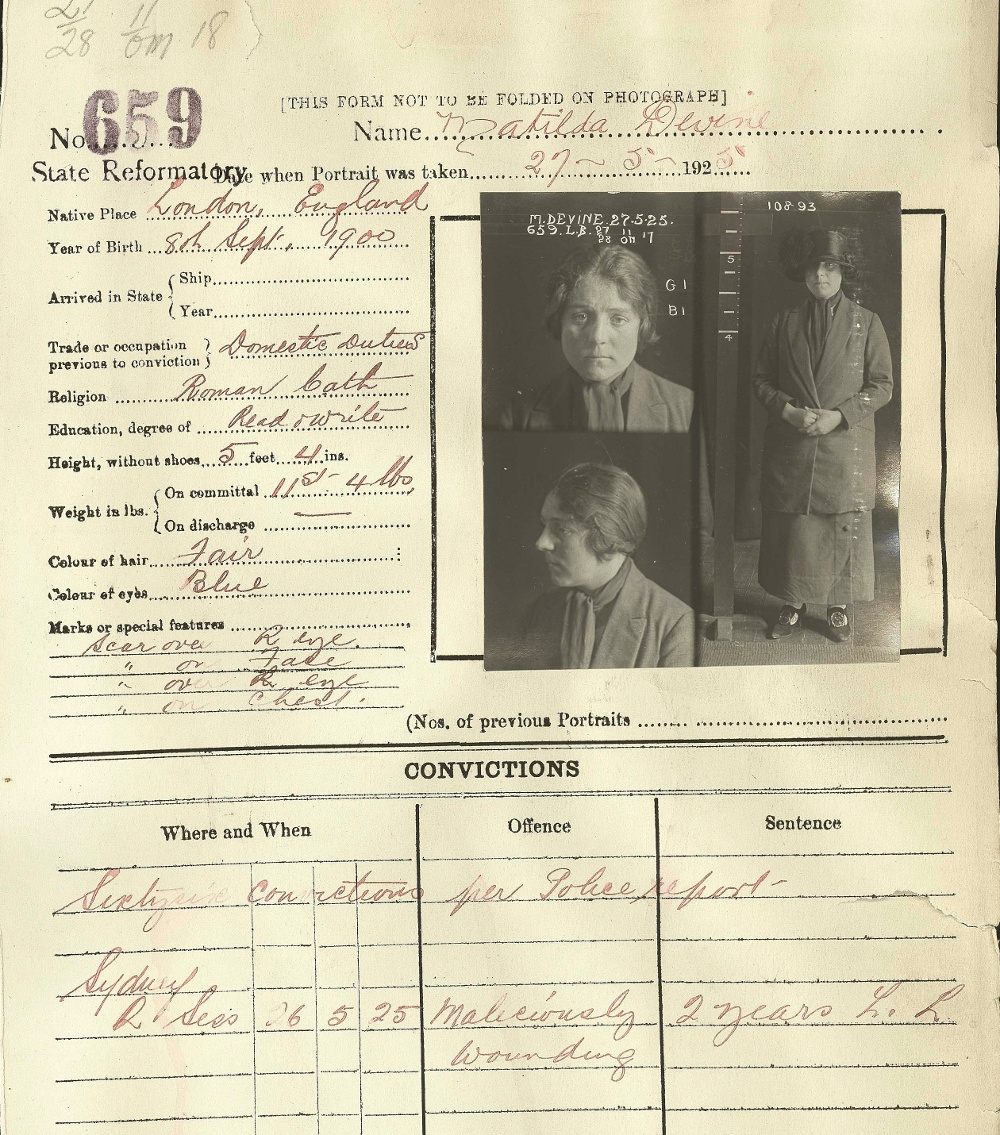 [THIS FORM NOT TO BE FOLDED ON PHOTOGRAPH]
No. 659 Name Matilda Devine
State Reformatory Date when Portrait was taken 27 - 5 - 1925
Native Place London, England
Year of Birth 8th Sept. 1900
Arrived in State { Ship
Year
Trade or occupation previous to conviction } Domestic Duties
Religion Roman Cath
Education, degree of Read & write
Height, without shoes 5 feet 4 ins.
Weight in lbs. { On committal 11st- 4 lbs
On discharge —
Colour of hair Fair
Colour of eyes Blue
Marks or special features
Scar over R eye.
" on Face
" over R eye
" on Chest.
M.DEVINE.27-5-25.
659.L.B.
108-93
G1
B1
5
4
(Nos. of previous Portraits
CONVICTIONS
Where and When Offence Sentence
Sixtysix Convictions per Police report-
Sydney
Q Sess 26 5 25 Maliciously 2 years L. L.
Wounding